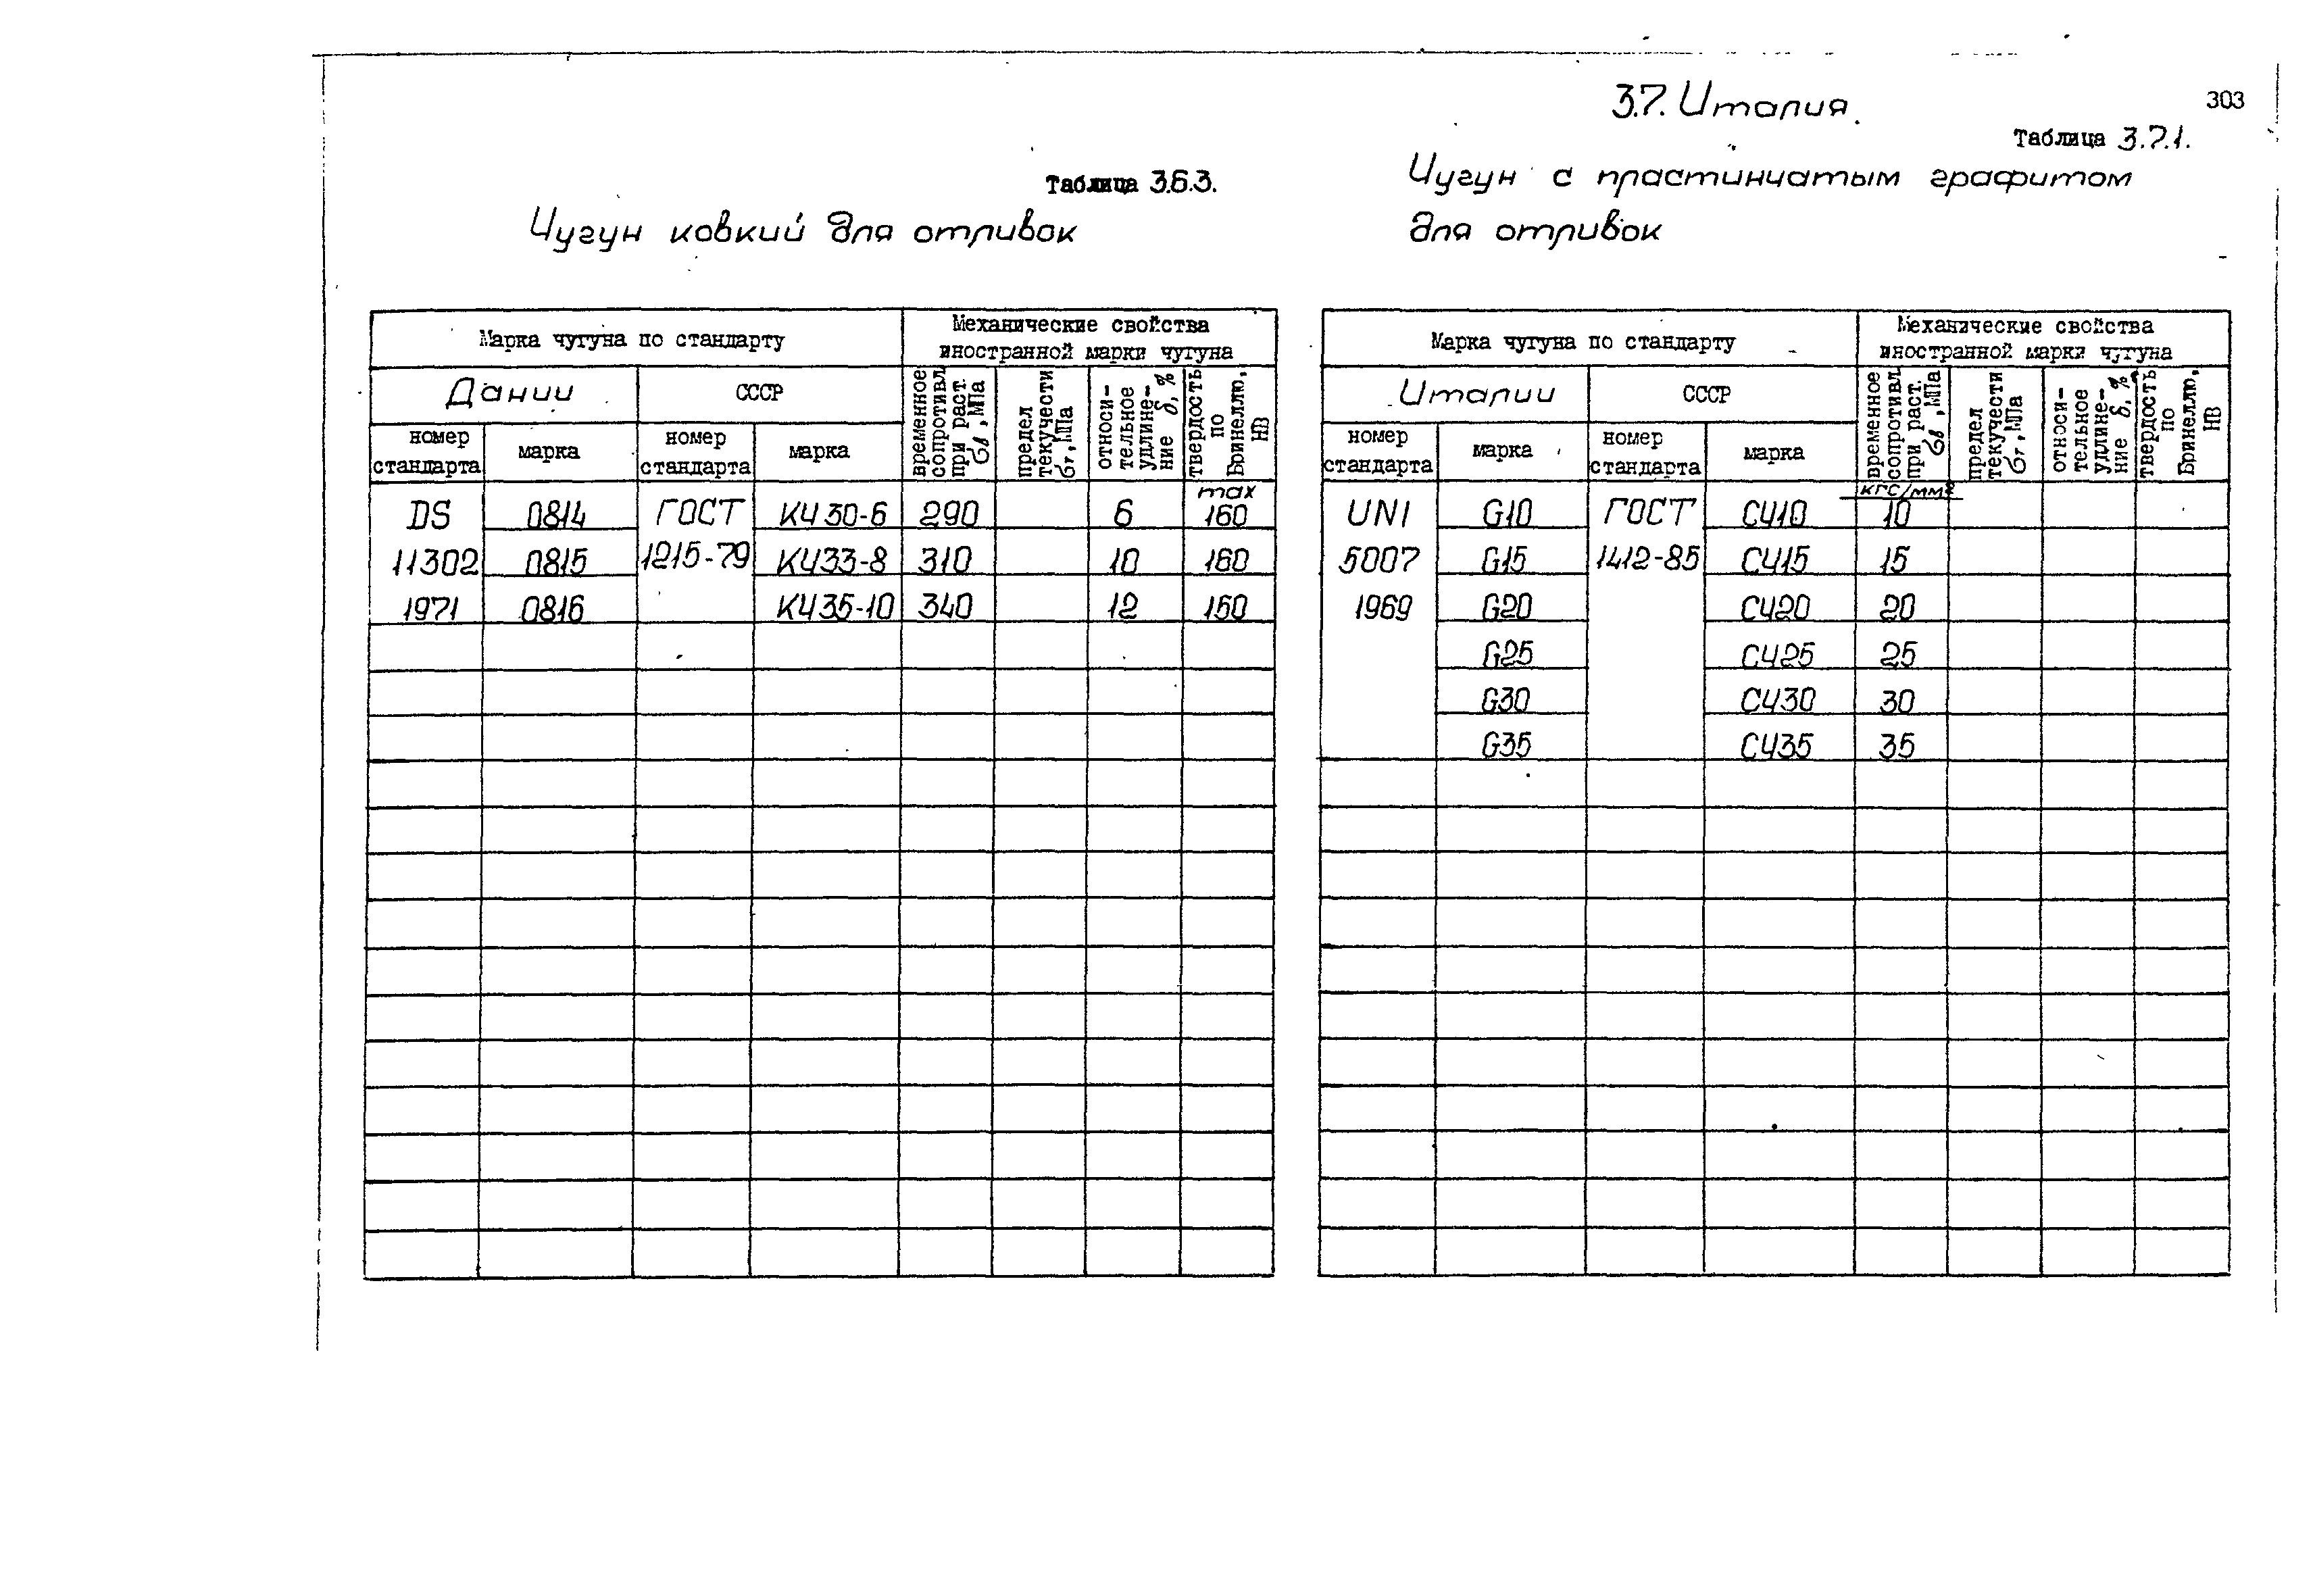 303
Таблица 3.6.3.
Чугун ковкий для отливок
Марка чугуна по стандарту
Механические свойства
иностранной марки чугуна
Дании
СССР
временное
сопротивл.
при раст.
σв, МПа
предел
текучести
σт, МПа
относи-
тельное
удлине-
ние δ, %
твердость
по
Бринеллю,
НВ
номер
стандарта
марка
номер
стандарта
марка
DS 0814 ГОСТ КЧ 30-6 290 6 max 160
11302 0815 1215-79 КЧ33-8 310 10 160
1971 0816 КЧ35-10 340 12 150
3.7. Италия.
Таблица 3.7.1.
Чугун с пластинчатым графитом
для отливок
Марка чугуна по стандарту
Механические свойства
иностранной марки чугуна
Италии
СССР
временное
сопротивл.
при раст.
σв, МПа
предел
текучести
σт, МПа
относи-
тельное
удлине-
ние δ, %
твердость
по
Бринеллю,
НВ
номер
стандарта
марка
номер
стандарта
марка
кгс/мм2
UNI G10 ГОСТ СЧ10 10
5007 G15 1412-85 СЧ15 15
1969 G20 СЧ20 20
G25 СЧ25 25
G30 СЧ30 30
G35 СЧ35 35